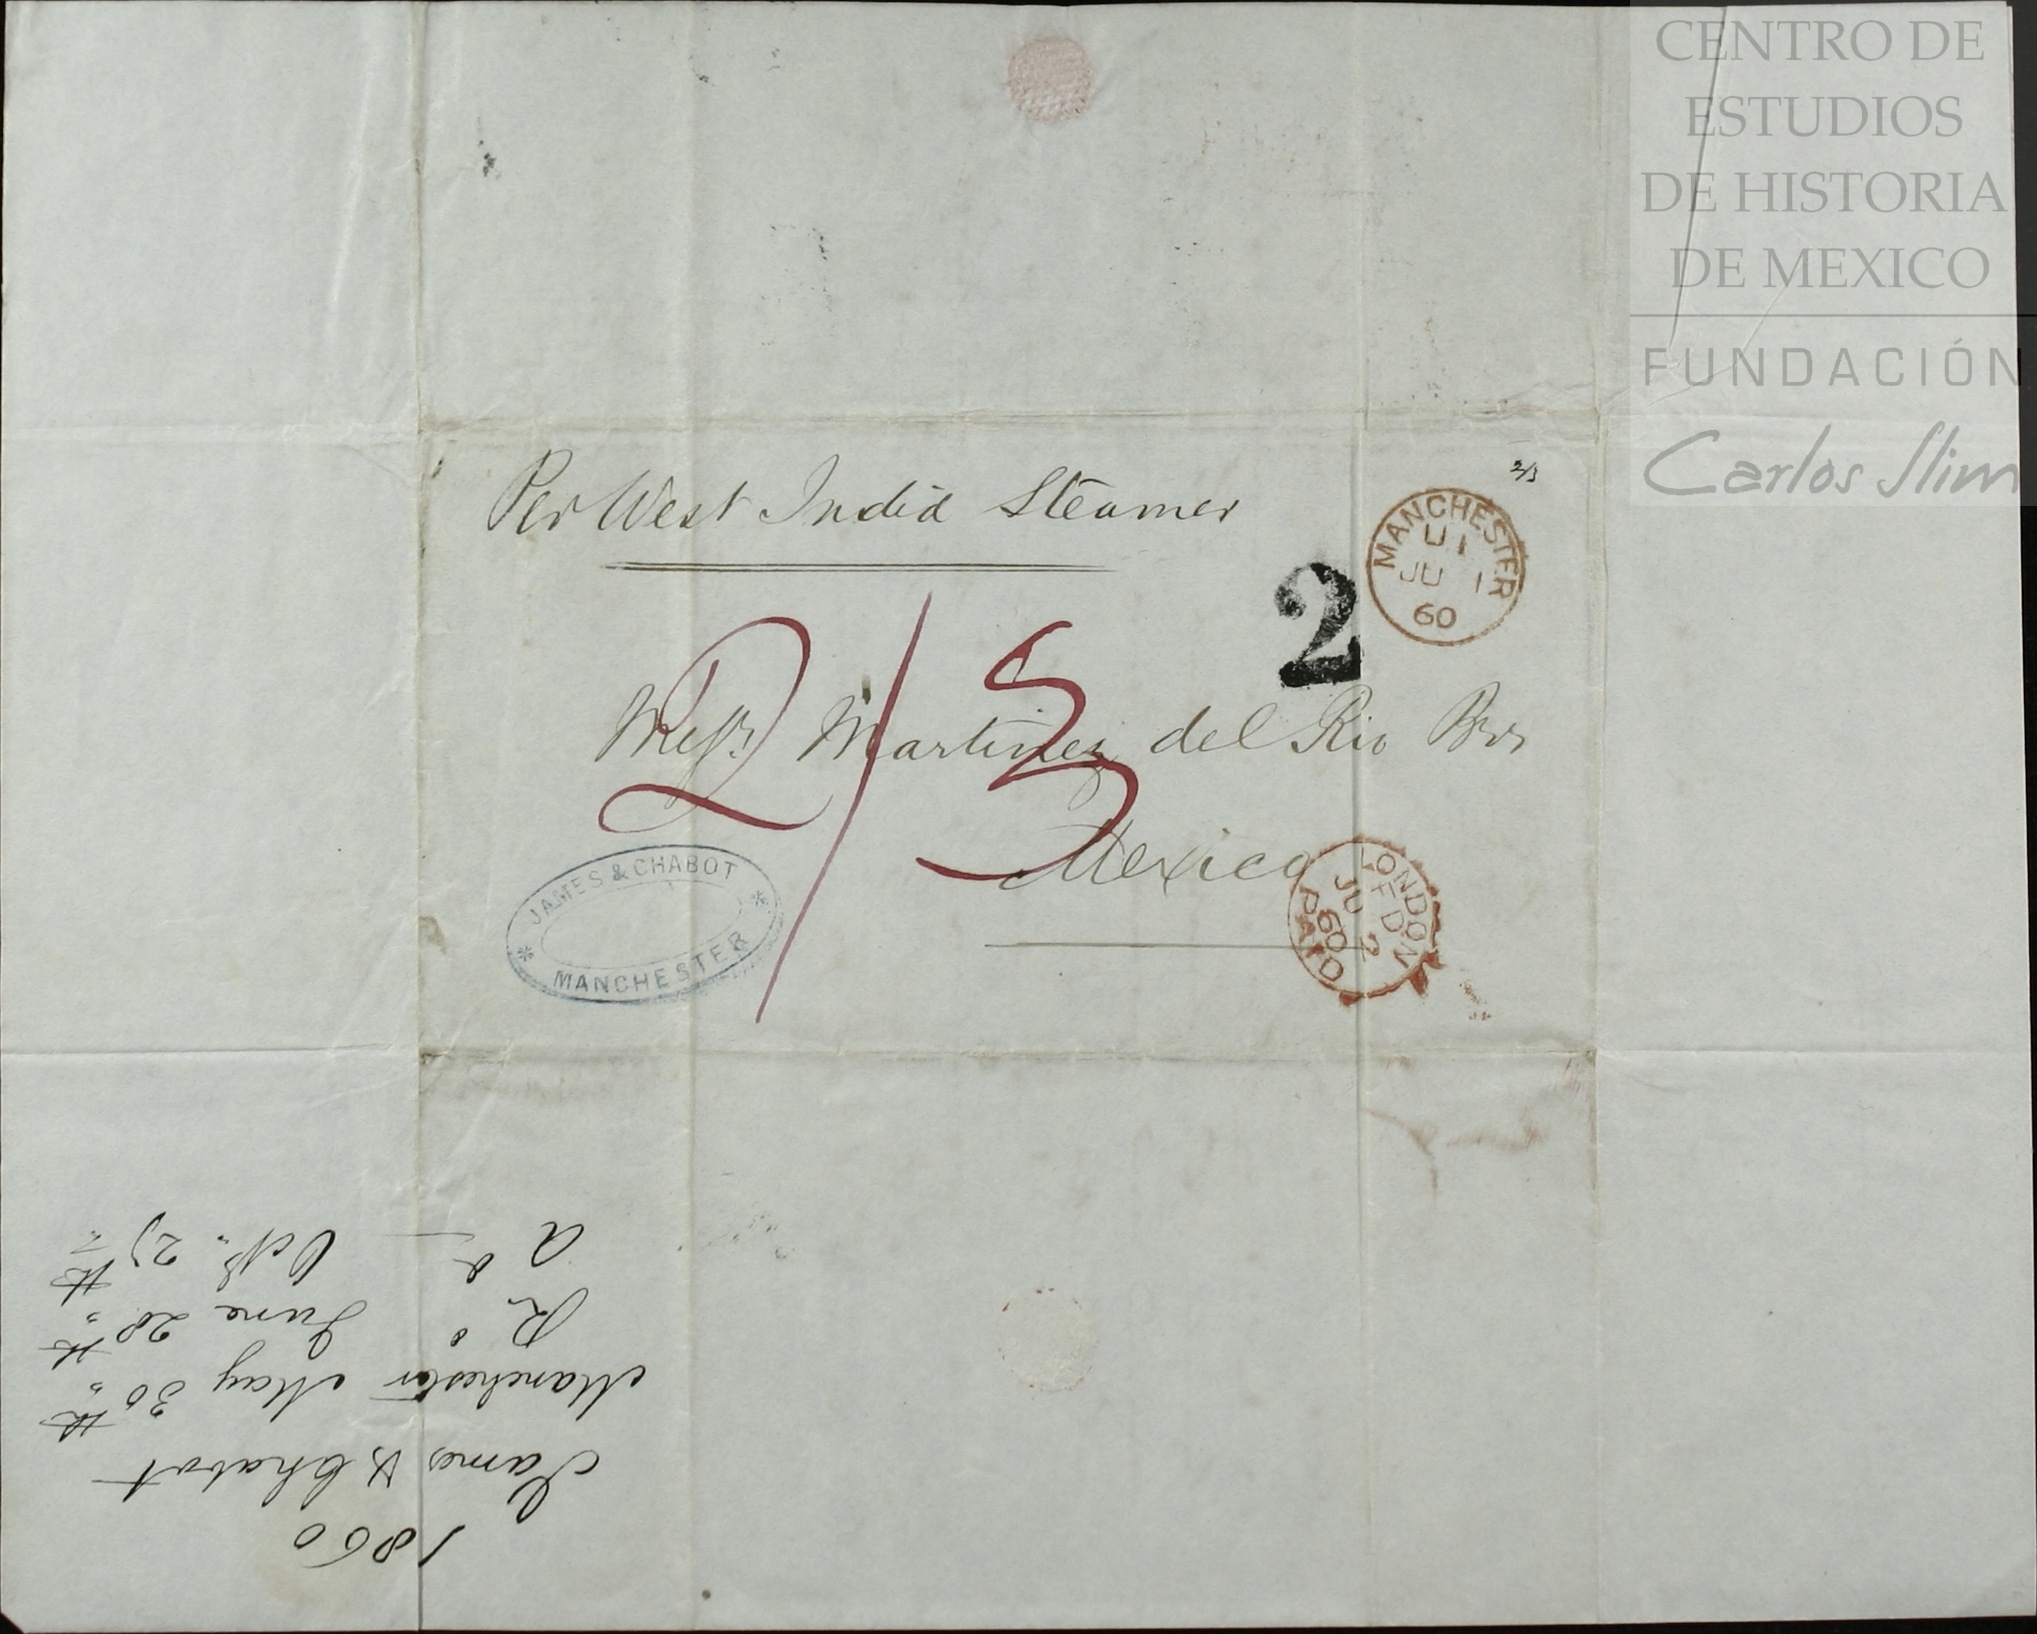 CENTRO DE
ESTUDIOS
DE HISTORIA
DE MEXICO
FUNDACIÓN
Carlos Slim
Per West India Steamer
2/3
MANCHESTER
U 1
JU 1
60
2
2/3
Messrs Martinez del Rio Bros
Mexico
JAMES & CHABOT
MANCHESTER
LONDON
JU 2
60
PAID
1860
James & Chabot
Manchester May 30th
Ro June 28th